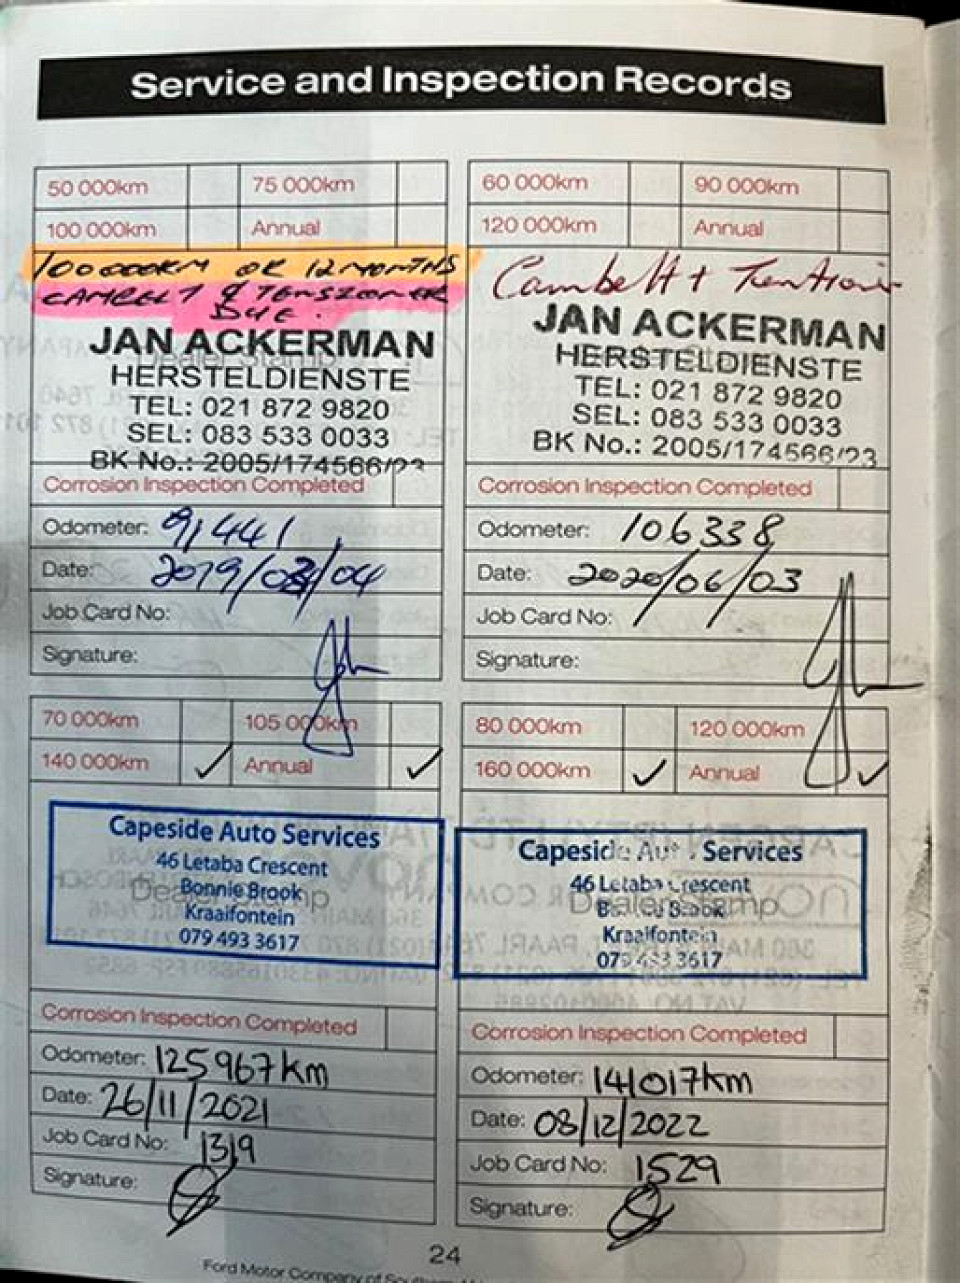 Service and Inspection Records
50 000km 75 000km
100 000km Annual
100 000KM OR 12 MONTHS
CAMBELT & TENSIONER
DUE.
JAN ACKERMAN
Dealer Stamp
HERSTELDIENSTE
TEL: 021 872 9820
SEL: 083 533 0033
BK No.: 2005/174566/23
Corrosion Inspection Completed
Odometer: 91,441
Date: 2019/03/04
Job Card No:
Signature:
60 000km 90 000km
120 000km Annual
Cambelt + Tensioner
JAN ACKERMAN
HERSTELDIENSTE
TEL: 021 872 9820
SEL: 083 533 0033
BK No.: 2005/174566/23
Corrosion Inspection Completed
Odometer: 106338
Date: 2020/06/03
Job Card No:
Signature:
70 000km 105 000km
140 000km ✓ Annual ✓
Capeside Auto Services
46 Letaba Crescent
Bonnie Brook
Dealer Stamp
Kraaifontein
079 493 3617
Corrosion Inspection Completed
Odometer: 125967km
Date: 26/11/2021
Job Card No: 1319
Signature:
80 000km 120 000km
160 000km ✓ Annual ✓
Capeside Auto Services
46 Letaba Crescent
Dealer Stamp
Kraaifontein
079 493 3617
Corrosion Inspection Completed
Odometer: 141017km
Date: 08/12/2022
Job Card No: 1529
Signature:
24
Ford Motor Company of Southern